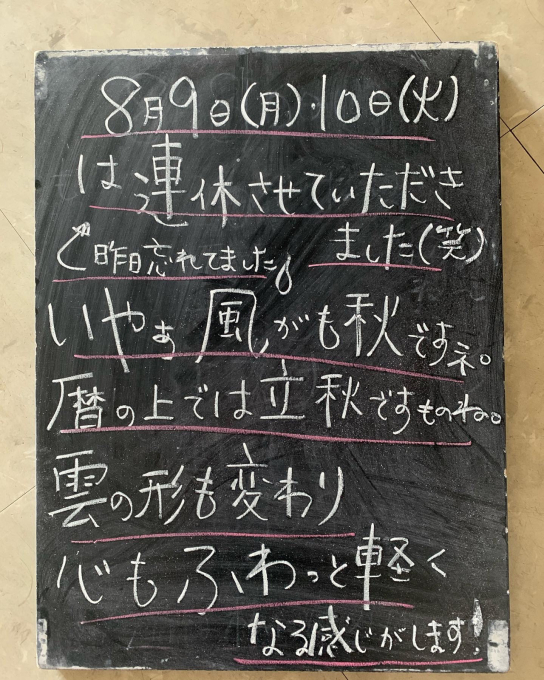 8月9日(月)・10日(火)
は連休させていただき
ました(笑)
昨日忘れてました
いやぁ風がも秋ですネ。
暦の上では立秋ですものね。
雲の形も変わり
心もふわっと軽く
なる感じがします!